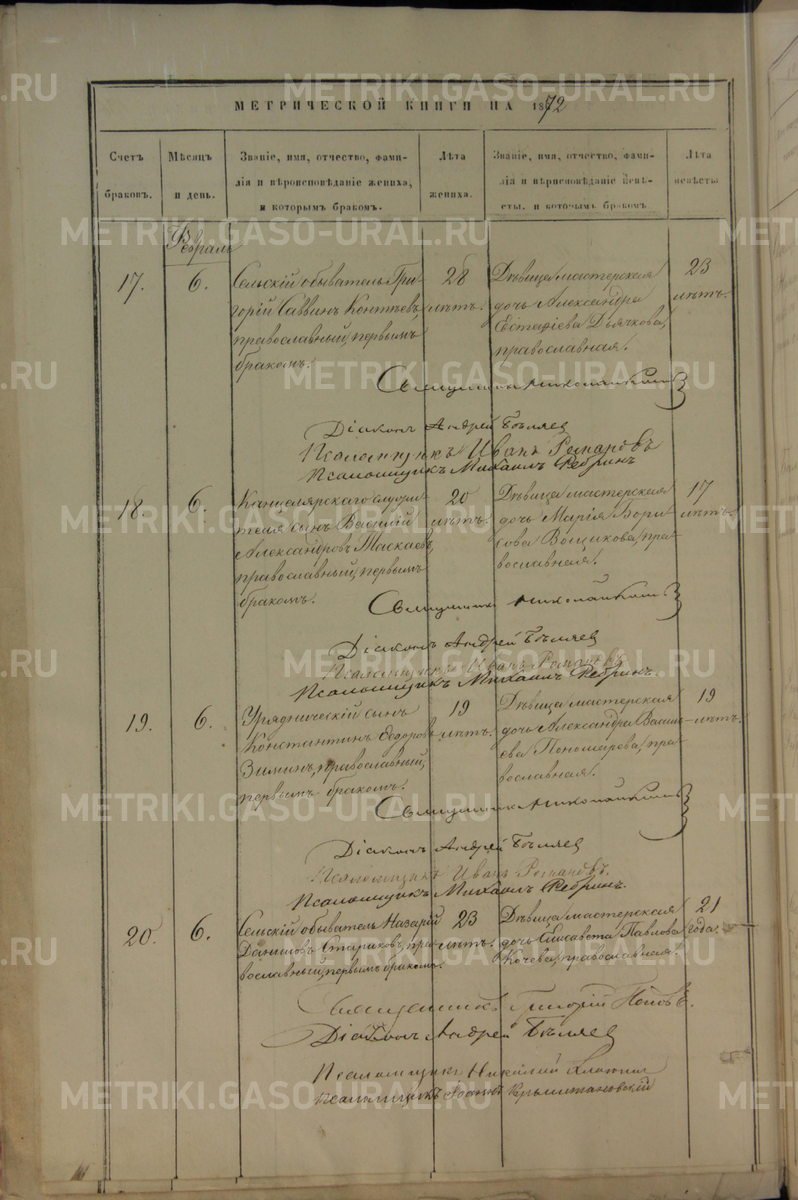 МЕТРИЧЕСКОЙ КНИГИ НА 1872
Счетъ браковъ.
Мѣсяцъ и день.
Званіе, имя, отчество, фами-
лія и вѣроисповѣданіе жениха,
и которымъ бракомъ.
Лѣта жениха.
Званіе, имя, отчество, фами-
лія и вѣроисповѣданіе невѣ-
сты, и которымъ бракомъ
Лѣта невѣсты
Февраль
17. 6.
Сельскій обыватель Гри-
горій Саввинъ
православный, первымъ
бракомъ.
28
лѣтъ.
Дѣвица мастерская
дочь Александра
Естафіева Дьячкова,
православная.
23
лѣтъ.
Священникъ
Діаконъ Андрей Бѣляев
Псаломщикъ Иванъ
Псаломщикъ Михаилъ Ребринъ
18. 6.
Канцелярскаго служи-
теля сынъ Василій
Александровъ Таскаевъ,
православный, первымъ
бракомъ.
20
лѣтъ.
Дѣвица мастерская
дочь Марія Бори-
сова Вощикова, пра-
вославная.
17
лѣтъ.
Священникъ
Діаконъ Андрей Бѣляев
Псаломщикъ Иванъ
Псаломщикъ Михаилъ Ребринъ
19. 6.
Урядническій сынъ
Константинъ Федоровъ
Зиминъ, православный,
первымъ бракомъ.
19
лѣтъ.
Дѣвица мастерская
дочь Александра Васи-
ева Пономарова, пра-
вославная.
19
лѣтъ.
Священникъ
Діаконъ Андрей Бѣляев
Псаломщикъ Иванъ
Псаломщикъ Михаилъ Ребринъ.
20. 6.
Сельскій обыватель Назарій
Даниловъ Стариковъ, пра-
вославный, первымъ бракомъ.
23
лѣтъ.
Дѣвица мастерская
дочь Елисавета Павлова
Кочева, православная.
21
года.
Священникъ Григорій Поповъ.
Діаконъ Андрей Бѣляев
Псаломщикъ Николай
Псаломщикъ Іоаннъ
METRIKI.GASO-URAL.RU